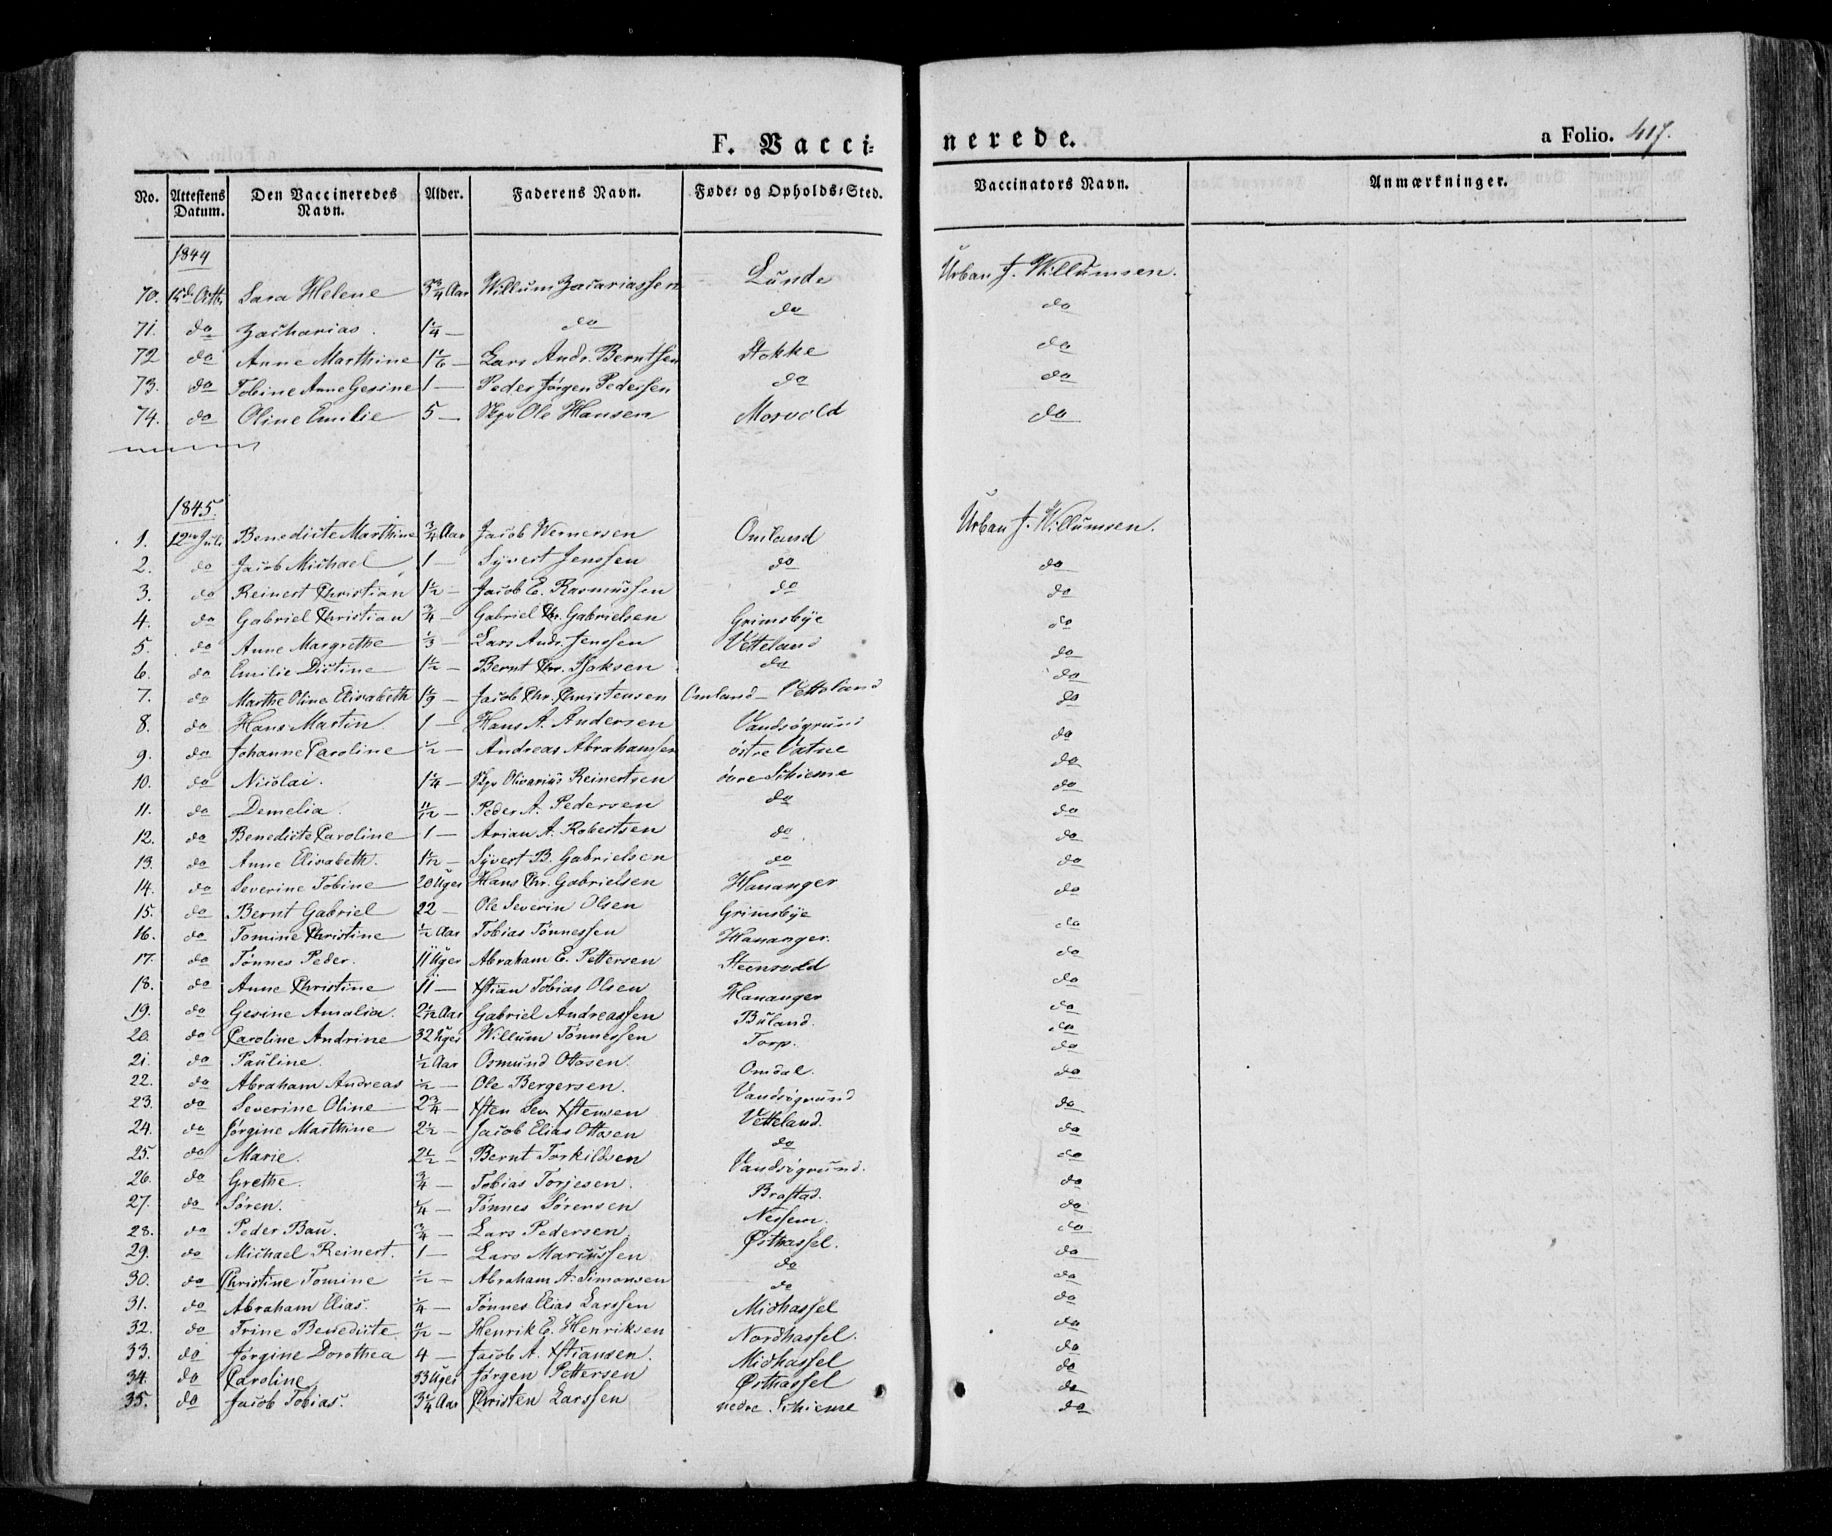 F. Vacci=nerede.
a Folio. 417.
No. Attestens Datum. Den Vaccineredes Navn. Alder. Faderens Navn. Føde= og Opholds=Sted. Vaccinators Navn. Anmærkninger.
1844
70. Sara Helene 3 3/4 Aar Willum Zacariassen Lunde Urban J. Willumsen.
71. do Zacharias. 1 1/4 — do do do
72 do Anne Marthine 1 1/6 — Lars Andr. Berntsen Stokke do
73. do Tobine Anne Gesine 1 — Peder Jørgen Pedersen do do
74. do Oline Emilie 5 — Ole Hansen Morvold do
1845.
1. 12te Juli Benedicte Marthine 3/4 Aar Jacob Wernersen Omland Urban J. Willumsen.
2. do Jacob Michael 1 — Syvert Jenssen do do
3. do Reinert Christian 1 1/2 — Jacob E. Rasmussen do do
4. do Gabriel Christian 3/4 — Gabriel Chr. Gabrielsen Grimsbye do
5. do Anne Margrethe 1/3 — Lars Andr. Jenssen Vetteland do
6. do Emilie Distine 1 1/2 — Bernt Chr. do do
7. do Marthe Oline Elisabeth 1 1/9 — Jacob Chr. Christensen Omland — Vetteland do
8. do Hans Martin 1 — Hans A. Andersen Vandsøgrund do
9. do Johanne Caroline 1/2 — Andreas Abrahamsen østre Vatne do
10. do Nicolai. 1 1/4 — Olivarius Reinertsen øvre Skieme do
11. do Demelia. 11/12 — Peder A. Pedersen do do
12. do Benedicte Caroline 1 — Arian A. Robertsen do do
13. do Anne Elisabeth. 1 1/2 — Syvert B. Gabrielsen do do
14. do Severine Tobine 20 Uger Hans Chr. Gabrielsen Hananger do
15. do Bernt Gabriel 22 — Ole Severin Olsen Grimsbye
16. do Tomine Christine 1/2 Aar Tobias Tønnessen Hananger. do
17. do Tønnes Peder. 11 Uger Abraham E. Pettersen Steensvold do
18. do Anne Christine 11 — Xstian Tobias Olsen Hananger do
19. do Gesine Amalia. 2 1/2 Aar Gabriel Andreassen Büland. do
20. do Caroline Andrine 32 Uger Willum Tønnessen Torp. do
21. do Pauline. 1/2 Aar Osmund Ottosen. Omdal. do
22. do Abraham Andreas 1/2 — Ole Bergersen. Vandsøgrund do
23. do Severine Oline 2 3/4 — Xsten Sev. Xstensen Vetteland. do
24. do Jørgine Marthine 2 1/2 — Jacob Elias Ottosen do do
25. do Marie. 2 1/2 — Bernt Torkildsen Vandsøgrund. do
26. do Grethe. 3/4 — Tobias Torjesen. Brastad. do
27. do Søren. 1/4 — Tønnes Sørensen Nessem. do
28. do Peder Bau. 3/4 — Lars Pedersen. Østhassel. do
29. do Michael Reinert. 1 — Lars Marcussen do do
30. do Christine Tomine 1/2 — Abraham A. Simonsen do do
31. do Abraham Elias. 1/4 — Tønnes Elias Larssen Midhassel do
32. do Trine Benedicte Henrik E. Henriksen Nordhassel. do
33. do Jørgine Dorothea 4 — Jacob A. Xstiansen. Midhassel do
34. do Caroline Uger Jørgen Pettersen Østhassel do
35. do Jacob Tobias. 3 1/4 Aar Christen Larssen nedre Skieme do